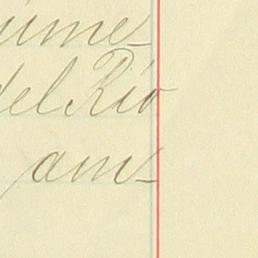 ume-
del Rio
am-